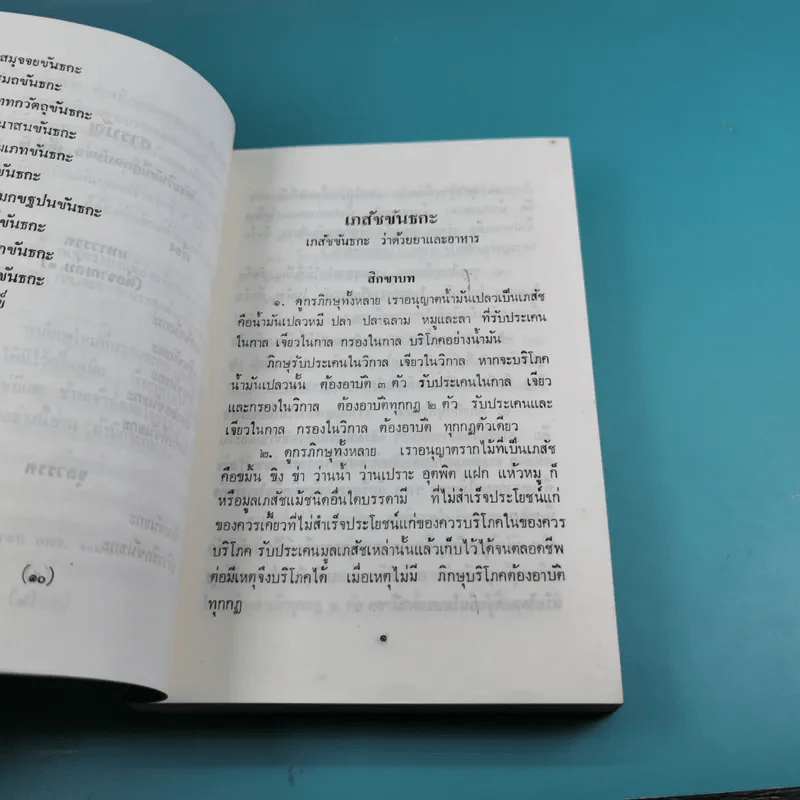 สมุจจยขันธกะ
สมถขันธกะ
นาสนขันธกะ
ขันธกะ
ขันธกะ
ขันธกะ
ขันธกะ
(๑๐)
เภสัชขันธกะ
เภสัชขันธกะ ว่าด้วยยาและอาหาร
สิกขาบท
๑. ดูกรภิกษุทั้งหลาย เราอนุญาตน้ำมันเปลวเป็นเภสัช
คือน้ำมันเปลวหมี ปลา ปลาฉลาม หมูและลา ที่รับประเคน
ในกาล เจียวในกาล กรองในกาล บริโภคอย่างน้ำมัน
ภิกษุรับประเคนในวิกาล เจียวในวิกาล หากจะบริโภค
น้ำมันเปลวนั้น ต้องอาบัติ ๓ ตัว รับประเคนในกาล เจียว
และกรองในวิกาล ต้องอาบัติทุกกฏ ๒ ตัว รับประเคนและ
เจียวในกาล กรองในวิกาล ต้องอาบัติ ทุกกฏตัวเดียว
๒. ดูกรภิกษุทั้งหลาย เราอนุญาตรากไม้ที่เป็นเภสัช
คือขมิ้น ขิง ข่า ว่านน้ำ ว่านเปราะ อุตพิต แฝก แห้วหมู ก็
หรือมูลเภสัชแม้ชนิดอื่นใดบรรดามี ที่ไม่สำเร็จประโยชน์แก่
ของควรเคี้ยวที่ไม่สำเร็จประโยชน์แก่ของควรบริโภคในของควร
บริโภค รับประเคนมูลเภสัชเหล่านั้นแล้วเก็บไว้ได้จนตลอดชีพ
ต่อมีเหตุจึงบริโภคได้ เมื่อเหตุไม่มี ภิกษุบริโภคต้องอาบัติ
ทุกกฏ
๑